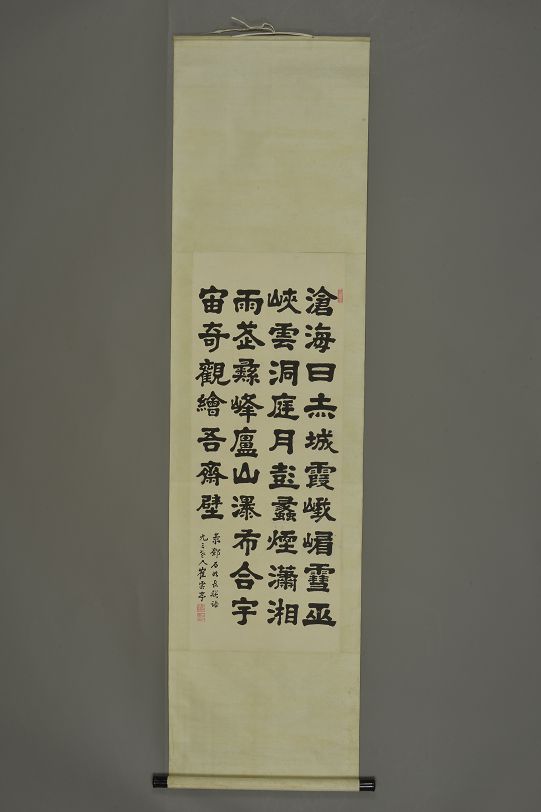 滄海日赤城霞峨嵋雪巫
峽雲洞庭月彭蠡煙瀟湘
雨武彝峰廬山瀑布合宇
宙奇觀繪吾齋壁
录鄧石如長聯語
九三老人崔雲亭